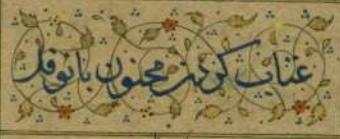 عتاب کردن مجنون با نوفل